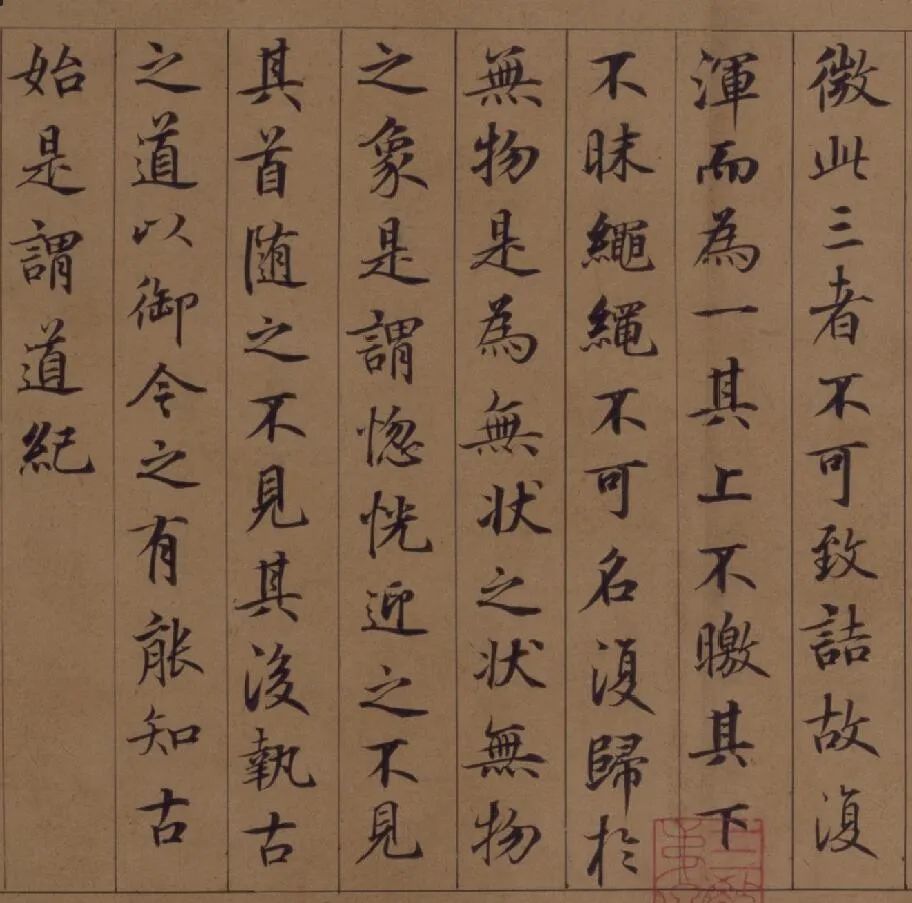 微此三者不可致詰故復
渾而為一其上不曒其下
不昧繩繩不可名復歸於
無物是為無状之状無物
之象是謂惚恍迎之不見
其首随之不見其後執古
之道以御今之有能知古
始是謂道紀